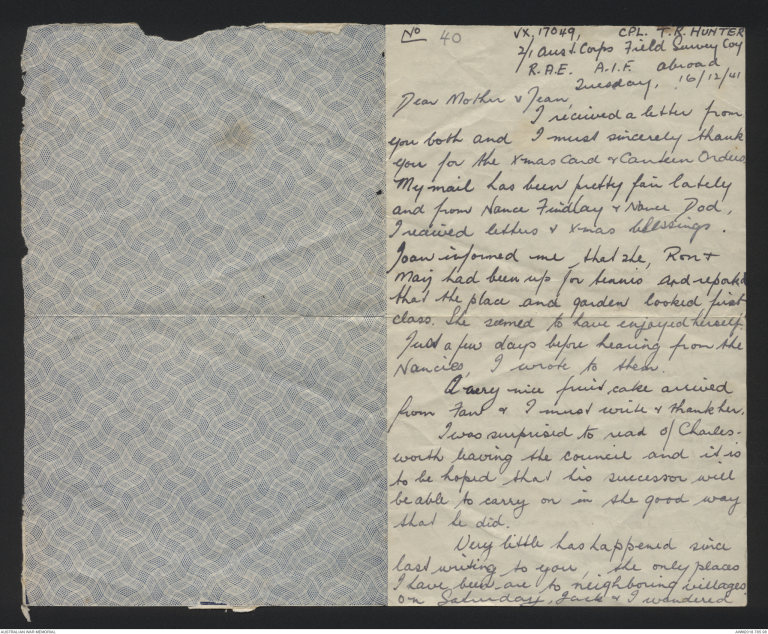 No 40
VX, 17049, CPL. T.R. HUNTER
2/1 Aust. Corps Field Survey Coy
R.A.E. A.I.F. abroad
Tuesday, 16/12/41
Dear Mother & Jean,
I received a letter from
you both and I must sincerely thank
you for the Xmas Card & Canteen Orders
My mail has been pretty fair lately
and from Nance Findlay & Nance Dod,
I received letters & Xmas blessings.
Joan informed me that she, Ron &
Marj had been up for tennis and reported
that the place and garden looked first
class. She seemed to have enjoyed herself.
Just a few days before hearing from the
Nancies, I wrote to them.
A very nice fruit cake arrived
from & I must write & thank her.
I was surprised to read of Charles-
worth leaving the council and it is
to be hoped that his successor will
be able to carry on in the good way
that he did.
Very little has happened since
last writing to you, the only places
I have been are to neighboring villages
On Saturday, Jack & I wandered
AUSTRALIAN WAR MEMORIAL